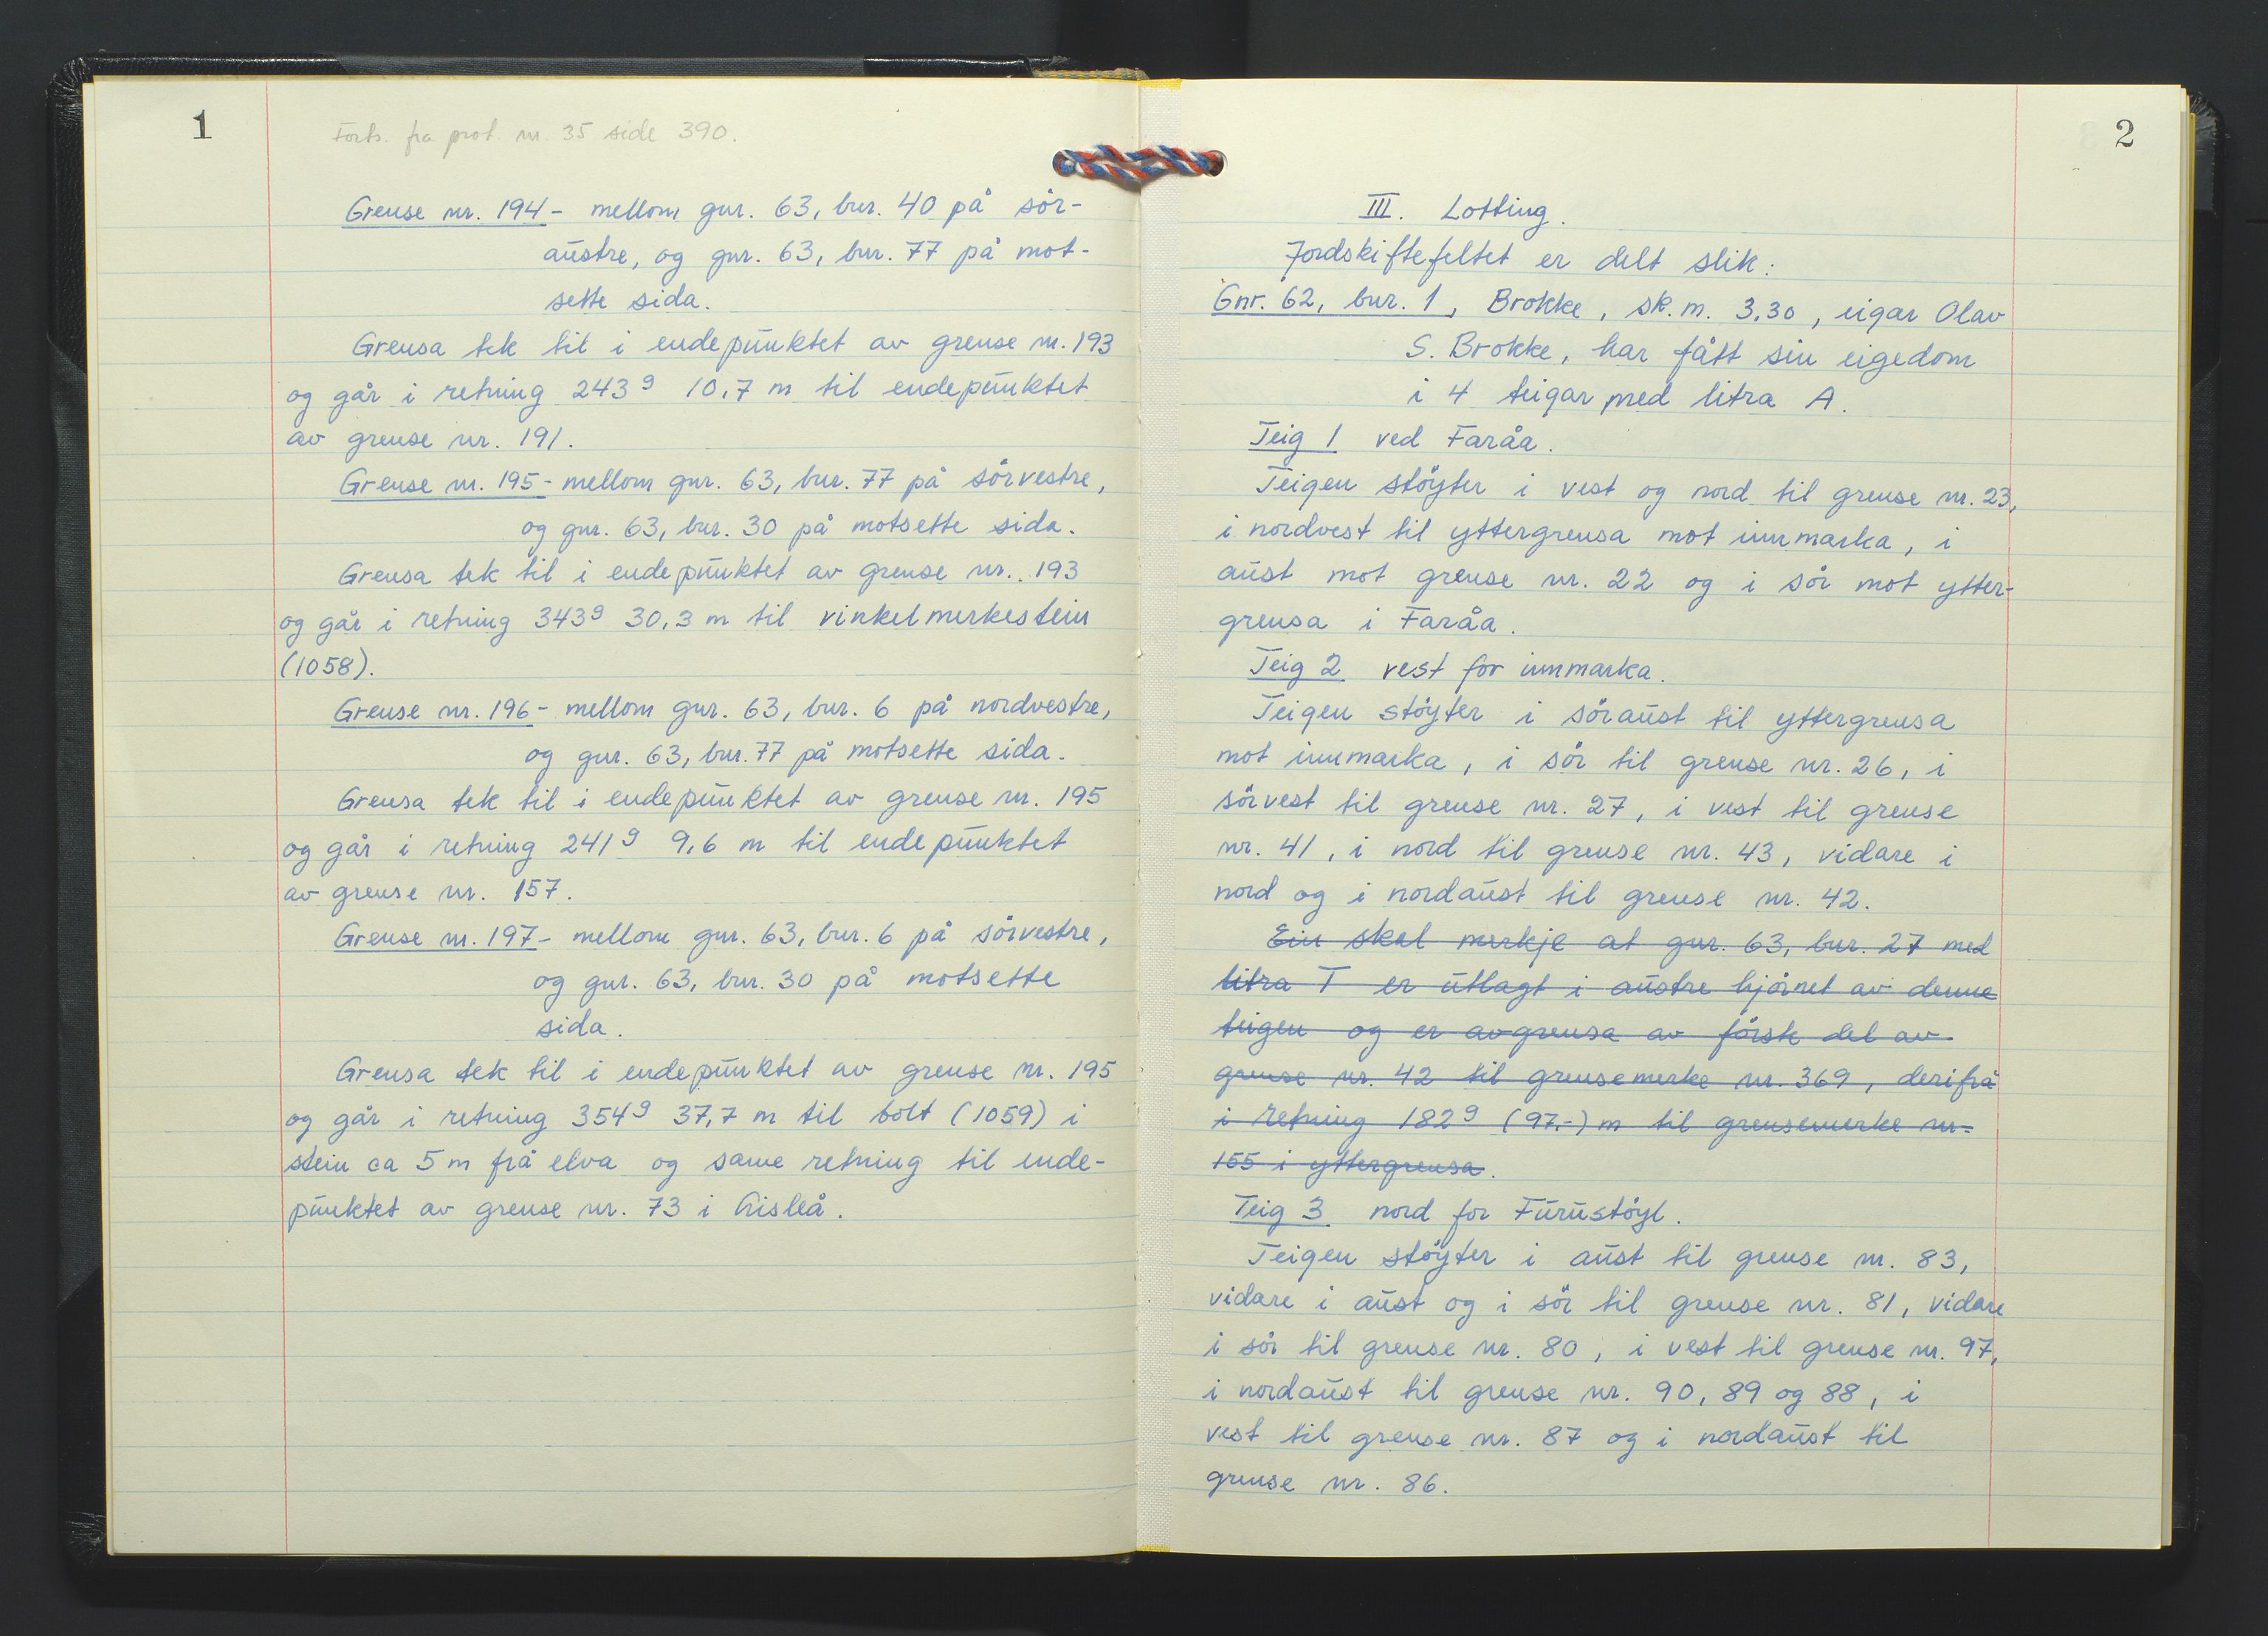 1
Forts. fra prot. nr. 35 side 390.
Grense nr. 194 - mellom gnr. 63, bnr. 40 på sør-
austre, og gnr. 63, bnr. 77 på mot-
sette sida.
Grensa tek til i endepunktet av grense nr. 193
og går i retning 243g 10,7 m til endepunktet
av grense nr. 191.
Grense nr. 195 - mellom gnr. 63, bnr. 77 på sørvestre,
og gnr. 63, bnr. 30 på motsette sida.
Grensa tek til i endepunktet av grense nr. 193
og går i retning 343g 30,3 m til vinkelmerkestein
(1058).
Grense nr. 196 - mellom gnr. 63, bnr. 6 på nordvestre,
og gnr. 63, bnr. 77 på motsette sida.
Grensa tek til i endepunktet av grense nr. 195
og går i retning 241g 9,6 m til endepunktet
av grense nr. 157.
Grense nr. 197 - mellom gnr. 63, bnr. 6 på sørvestre,
og gnr. 63, bnr. 30 på motsette
sida.
Grensa tek til i endepunktet av grense nr. 195
og går i retning 354g 37,7 m til bolt (1059) i
stein ca 5 m frå elva og same retning til ende-
punktet av grense nr. 73 i Aisleå.
2
III. Lotting.
Jordskiftefeltet er delt slik:
Gnr. 62, bnr. 1, Brokke, sk.m. 3,30, eigar Olav
S. Brokke, har fått sin eigedom
i 4 teigar med litra A.
Teig 1 ved Faråa.
Teigen støyter i vest og nord til grense nr. 23,
i nordvest til yttergrensa mot innmarka, i
aust mot grense nr. 22 og i sør mot ytter-
grensa i Faråa.
Teig 2 vest for innmarka.
Teigen støyter i søraust til yttergrensa
mot innmarka, i sør til grense nr. 26, i
sørvest til grense nr. 27, i vest til grense
nr. 41, i nord til grense nr. 43, vidare i
nord og i nordaust til grense nr. 42.
Ein skal merkje at gnr. 63, bnr. 27 med
litra T er utlagt i austre hjørnet av denne
teigen og er avgrensa av førsk del av
grense nr. 42 til grensemerke nr. 369, derifrå
i retning 182g (97,-) m til grensemerke nr.
155 i yttergrensa.
Teig 3 nord for Furustøyl.
Teigen støyter i aust til grense nr. 83,
vidare i aust og i sør til grense nr. 81, vidare
i sør til grense nr. 80, i vest til grense nr. 97,
i nordaust til grense nr. 90, 89 og 88, i
vest til grense nr. 87 og i nordaust til
grense nr. 86.